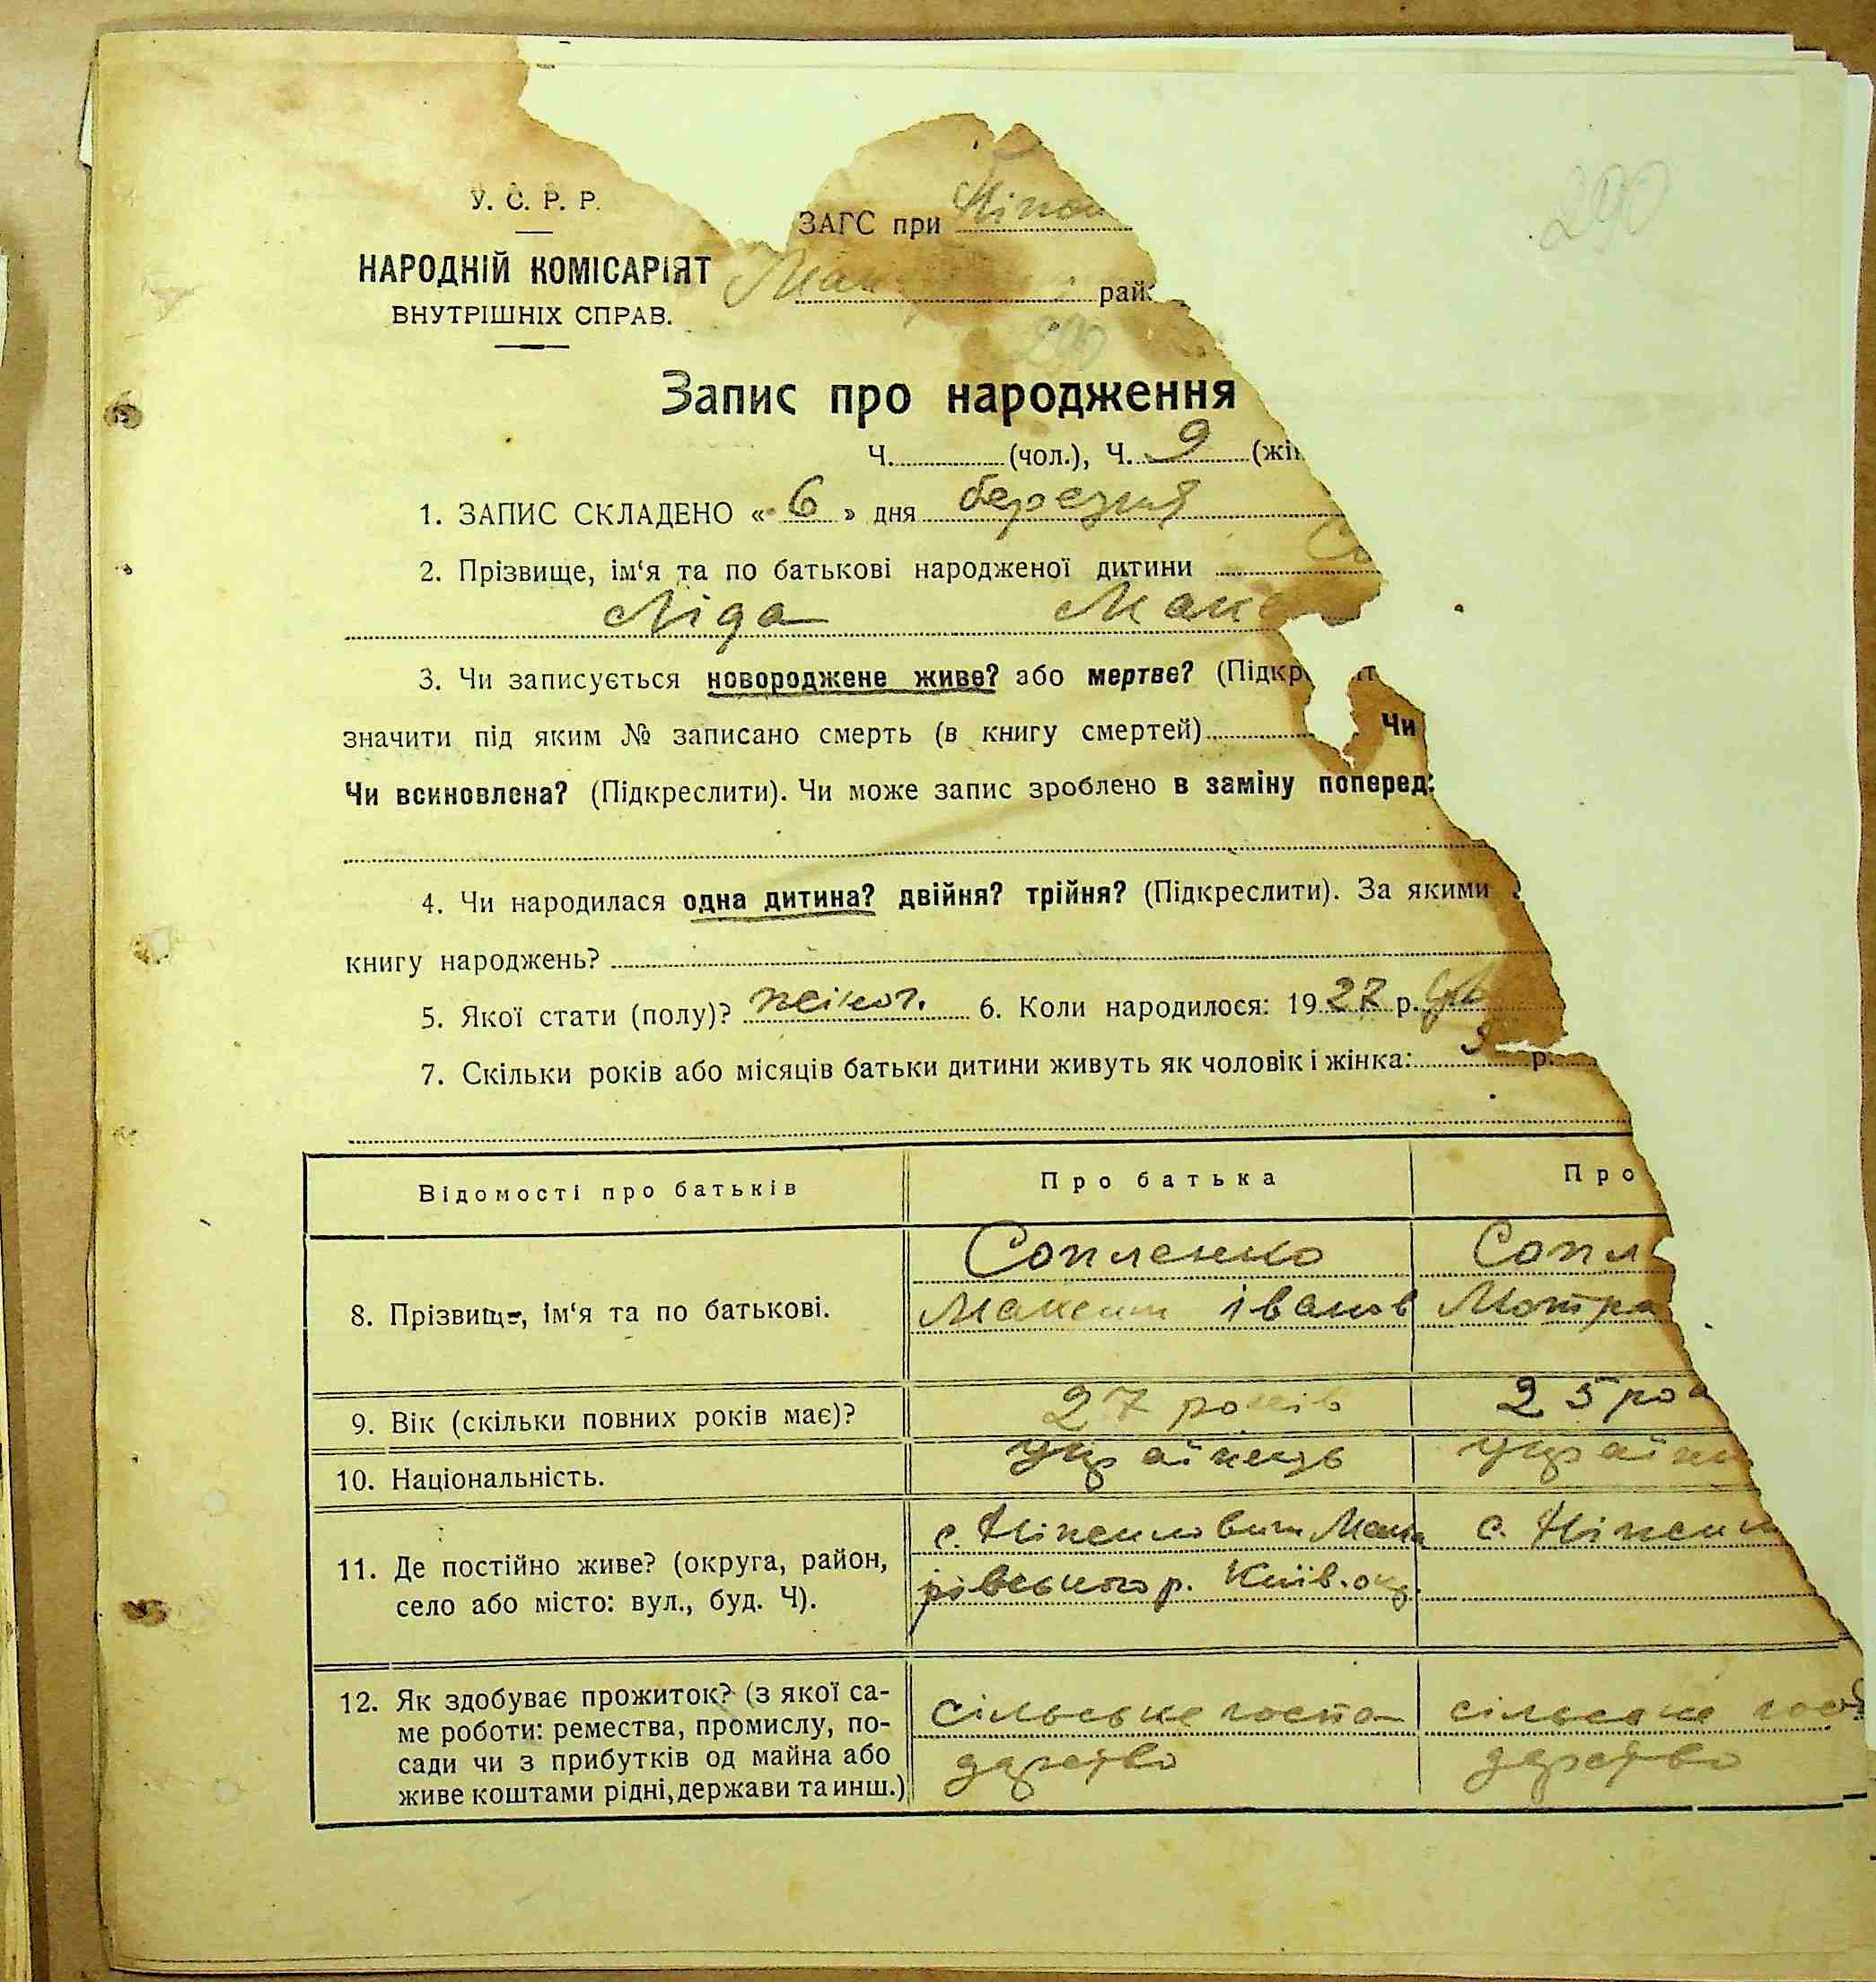 290
У. С. Р. Р.
ЗАГС при Ніпон
НАРОДНІЙ КОМІСАРІЯТ
Мак рай.
ВНУТРІШНІХ СПРАВ.
290
Запис про народження
Ч. (чол.), Ч. 9 (жін
1. ЗАПИС СКЛАДЕНО « 6 » дня березня
2. Прізвище, ім‘я та по батькові народженої дитини Со
Ліда Макс
3. Чи записується новороджене живе? або мертве? (Підкр
значити під яким № записано смерть (в книгу смертей) Чи
Чи всиновлена? (Підкреслити). Чи може запис зроблено в заміну поперед
4. Чи народилася одна дитина? двійня? трійня? (Підкреслити). За якими
книгу народжень?
5. Якої стати (полу)? жіноч. 6. Коли народилося: 1927 р.
7. Скільки років або місяців батьки дитини живуть як чоловік і жінка: 5 р.
Відомості про батьків Про батька Про
8. Прізвище, ім‘я та по батькові.
Сопленко Сопл
Максим Іванов Мотра
9. Вік (скільки повних років має)? 27 років 25 ро
10. Національність. українець україн
11. Де постійно живе? (округа, район,
село або місто: вул., буд. Ч).
с. Ніжиловичі Мака с. Ніжил
рівського р. Київ. окр.
12. Як здобуває прожиток? (з якої са-
ме роботи: ремества, промислу, по-
сади чи з прибутків од майна або
живе коштами рідні, держави та инш.)
сільське госпо сільське госп
дарство дарство